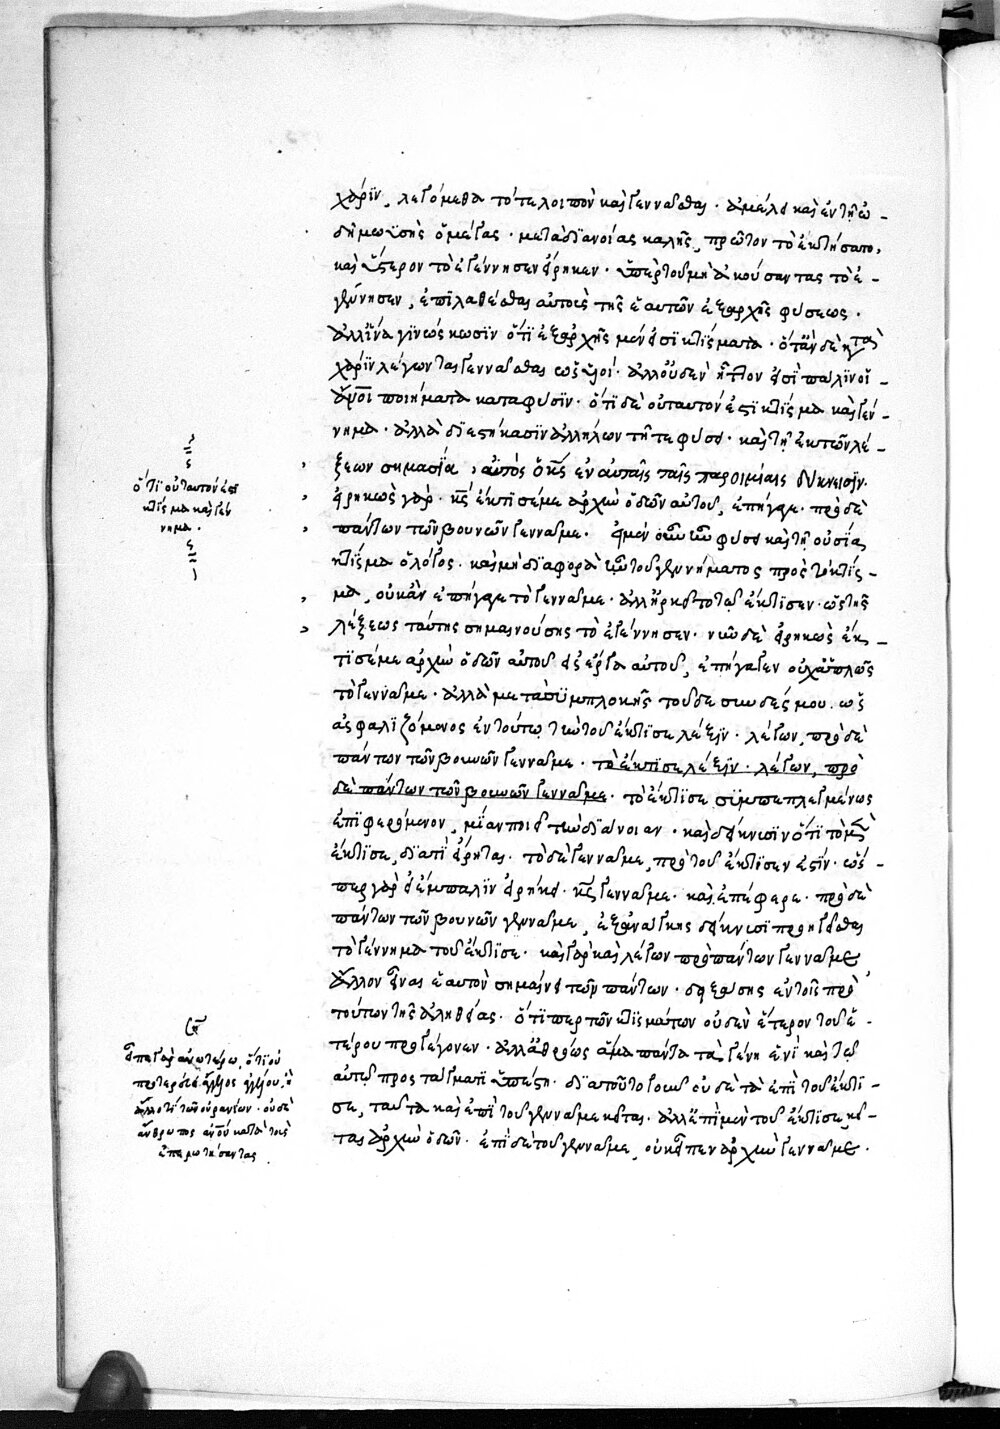 χάριν, λεγόμεθα τότε λοιπὸν καὶ γεννᾶσθαι. ἀμέλει καὶ ἐν τῇ ὠ-
δῇ μωϋσῆς ὁ μέγας. μετὰ διανοίας καλῆς, πρῶτον τὸ ἐκτήσατο,
καὶ ὕστερον τὸ ἐγέννησεν εἴρηκεν. ὑπὲρ τοῦ μὴ ἀκούσαντας τὸ ἐ-
γέννησεν, ἐπιλαθέσθαι αὐτοὺς τῆς ἑαυτῶν ἐξαρχῆς φύσεως.
ἀλλ' ἵνα γινώσκωσιν ὅτι ἐξαρχῆς μέν εἰσι κτίσματα. ὅταν δὲ κατὰ
χάριν λέγωνται γεννᾶσθαι ὡς υἱοί. ἀλλ' οὐδὲν ἧττον εἰσὶ πάλιν οἱ
ἄνοι ποιήματα κατὰ φύσιν. ὅτι δὲ οὐ ταυτόν ἐστι κτίσμα καὶ γέν-
νημα. ἀλλὰ διεστήκασιν ἀλλήλων τῇ τε φύσει. καὶ τῇ ἐκ τῶν λέ-
ξεων σημασίᾳ, αὐτὸς ὁ κς ἐν αὐταῖς ταῖς παροιμίαις δείκνυσιν.
εἰρηκὼς γὰρ. κς ἔκτισέ με ἀρχὴν ὁδῶν αὐτοῦ, ἐπήγαγε. πρὸ δὲ
πάντων τῶν βουνῶν γεννᾷ με. εἰ μὲν οὖν ἦν φύσει καὶ τῇ οὐσίᾳ
κτίσμα ὁ λόγος. καὶ μὴ διαφορὰ ἦν τοῦ γεννήματος πρὸς τὸ κτίσ-
μα, οὐκ ἂν ἐπήγαγε τὸ γεννᾷ με. ἀλλ' ἠρκεῖτο τῷ ἔκτισεν. ὡς τῆς
λέξεως ταύτης σημαινούσης τὸ ἐγέννησεν. νῦν δὲ εἰρηκὼς ἔκ-
τισέ με ἀρχὴν ὁδῶν αὐτοῦ εἰς ἔργα αὐτοῦ, ἐπήγαγεν οὐχ ἁπλῶς
τὸ γεννᾷ με. ἀλλὰ μετὰ συμπλοκῆς τοῦ δὲ συνδέσμου. ὡς
ἀσφαλιζόμενος ἐν τούτῳ τὴν τοῦ ἔκτισε λέξιν. λέγων, πρὸ δὲ
πάντων τῶν βουνῶν γεννᾷ με. τὸ ἔκτισε λέξιν. λέγων, πρὸ
δὲ πάντων τῶν βουνῶν γεννᾷ με. τὸ ἔκτισε συμπεπλεγμένως
ἐπιφερόμενον, μίαν ποιεῖ τὴν διάνοιαν. καὶ δείκνυσιν ὅτι τὸ μὲν
ἔκτισε, διά τι εἴρηται. τὸ δὲ γεννᾷ με, πρὸ τοῦ ἔκτισέν ἐστιν. ὥσ-
περ γὰρ εἰ ἔμπαλιν εἰρήκει. κς γεννᾷ με. καὶ ἐπέφερε. πρὸ δὲ
πάντων τῶν βουνῶν γεννᾷ με, ἐξ ἀνάγκης δείκνυσι προηγεῖσθαι
τὸ γέννημα τοῦ ἔκτισε. καὶ γὰρ καὶ λέγων πρὸ πάντων γεννᾷ με
ἄλλον εἶναι ἑαυτὸν σημαίνει τῶν πάντων. δειχθείσης ἐν τοῖς πρὸ
τούτων τῆς ἀληθείας. ὅτι περ τῶν κτισμάτων οὐδὲν ἕτερον τοῦ ἑ-
τέρου προγέγονεν. ἀλλ' ἀθρόως ἅμα πάντα τὰ γένη ἑνὶ καὶ τῷ
αὐτῷ προστάγματι ὑπέστη. διὰ τοῦτο γοῦν οὐδὲ τὰ ἐπὶ τοῦ ἔκτι-
σε, ταῦτα καὶ ἐπὶ τοῦ γεννᾷ με κεῖται. ἀλλ' ἐπὶ μὲν τοῦ ἔκτισε, κεῖ-
ται ἀρχὴν ὁδῶν. ἐπὶ δὲ τοῦ γεννᾷ με, οὐκ εἶπεν ἀρχὴν γεννᾷ με.
ὅτι οὐ ταυτόν ἐστι
κτίσμα καὶ γέν
νημα.
εἶπε γὰρ ἀνωτέρω, ὅτι οὐ
πρότερός ἐστιν ἥλιος ἡλίου, ἢ
ἄλλο τι τῶν οὐρανίων. οὐδὲ
ἄνθρωπος ἀνου κατὰ τοὺς
ἐπερωτήσαντας.